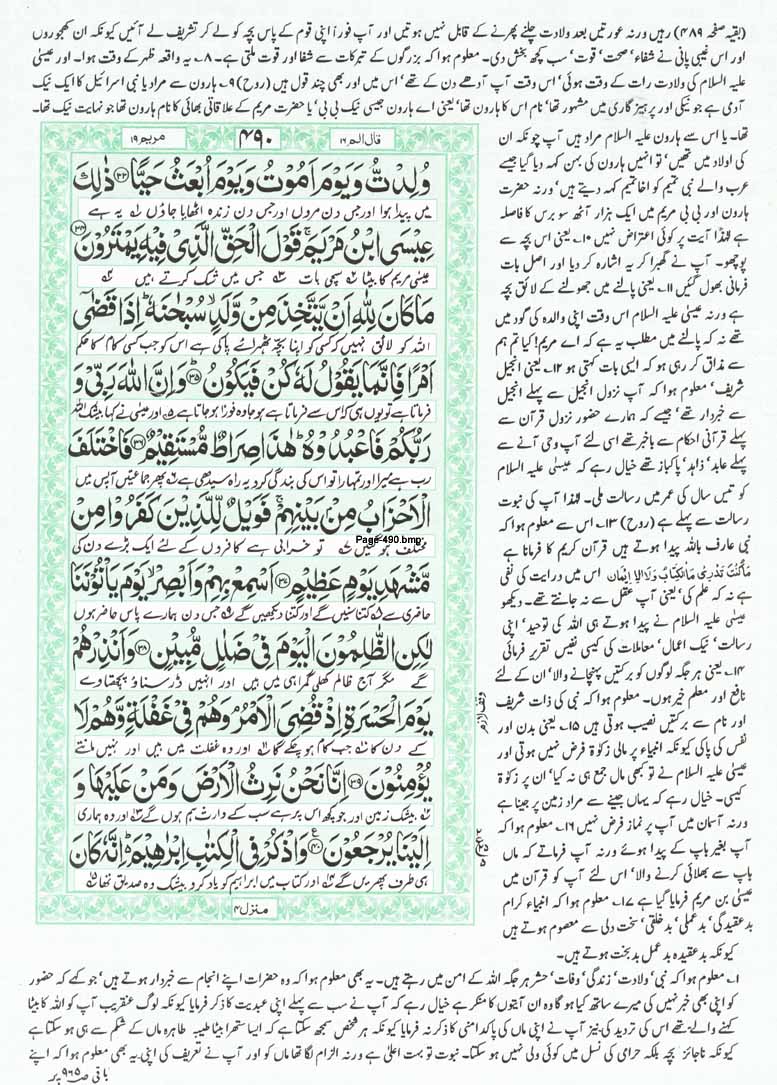 (بقیہ صفحہ ۴۸۹) رہیں ورنہ عورتیں بعد ولادت چلنے پھرنے کے قابل نہیں ہوتیں اور آپ فوراً اپنی قوم کے پاس بچہ کو لے کر تشریف لے آئیں کیونکہ ان کھجوروں
اور اس غیبی پانی نے شفاء' صحت' قوت' سب کچھ بخش دی۔ معلوم ہوا کہ بزرگوں کے تبرکات سے شفا اور قوت ملتی ہے۔ ۸۔ یہ واقعہ ظہر کے وقت ہوا۔ اور عیسیٰ
علیہ السلام کی ولادت رات کے وقت ہوئی' اس وقت آپ آدھے دن کے تھے' اس میں اور بھی چند قول ہیں (روح) ۹۔ ہارون سے مراد یا بنی اسرائیل کا ایک نیک
آدمی ہے جو نیکی اور پرہیز گاری میں مشہور تھا' نام اس کا ہارون تھا' یعنی اے ہارون جیسی نیک بی بی' یا حضرت مریم کے علاقائی بھائی کا نام ہارون تھا جو نہایت نیک تھا۔
قال الم ۱۶
۴۹۰
مریم ۱۹
وُلِدْتُّ وَيَوْمَ اَمُوْتُ وَيَوْمَ اُبْعَثُ حَيًّا ۳۳ ذٰلِكَ
میں پیدا ہوا اور جس دن مروں اور جس دن زندہ اٹھایا جاؤں یہ ہے
عِيْسَى ابْنُ مَرْيَمَ قَوْلَ الْحَقِّ الَّذِيْ فِيْهِ يَمْتَرُوْنَ ۳۴
عیسٰی مریم کا بیٹا سچی بات جس میں شک کرتے ہیں
مَا كَانَ لِلّٰهِ اَنْ يَّتَّخِذَ مِنْ وَّلَدٍ سُبْحٰنَهٗ اِذَا قَضٰٓى
اللہ کو لائق نہیں کہ کسی کو اپنا بچہ ٹھہرائے پاکی ہے اس کو جب کسی کام کا حکم
اَمْرًا فَاِنَّمَا يَقُوْلُ لَهٗ كُنْ فَيَكُوْنُ ۳۵ وَاِنَّ اللّٰهَ رَبِّيْ وَ
فرماتا ہے تو یوں ہی کہ اس سے فرماتا ہے ہو جا وہ فوراً ہو جاتا ہے اور عیسٰی نے کہا بیشک اللہ
رَبُّكُمْ فَاعْبُدُوْهُ هٰذَا صِرَاطٌ مُّسْتَقِيْمٌ ۳۶ فَاخْتَلَفَ
رب ہے میرا اور تمہارا تو اس کی بندگی کرو یہ راہ سیدھی ہے پھر جماعتیں آپس میں
الْاَحْزَابُ مِنْ بَيْنِهِمْ فَوَيْلٌ لِّلَّذِيْنَ كَفَرُوْا مِنْ
مختلف ہو گئیں تو خرابی ہے کافروں کے لئے ایک بڑے دن کی
Page-490.bmp
مَّشْهَدِ يَوْمٍ عَظِيْمٍ ۳۷ اَسْمِعْ بِهِمْ وَاَبْصِرْ يَوْمَ يَاْتُوْنَنَا
حاضری سے کتنا سنیں گے اور کتنا دیکھیں گے جس دن ہمارے پاس حاضر ہوں
لٰكِنِ الظّٰلِمُوْنَ الْيَوْمَ فِيْ ضَلٰلٍ مُّبِيْنٍ ۳۸ وَاَنْذِرْهُمْ
گے مگر آج ظالم کھلی گمراہی میں ہیں اور انہیں ڈر سناؤ پچھتاوے
يَوْمَ الْحَسْرَةِ اِذْ قُضِيَ الْاَمْرُ وَهُمْ فِيْ غَفْلَةٍ وَّهُمْ لَا
کے دن کا جب کام ہو چکے گا اور وہ غفلت میں ہیں اور نہیں مانتے
يُؤْمِنُوْنَ ۳۹ اِنَّا نَحْنُ نَرِثُ الْاَرْضَ وَمَنْ عَلَيْهَا وَ
بیشک زمین اور جو کچھ اس پر ہے سب کے وارث ہم ہوں گے اور وہ ہماری
اِلَيْنَا يُرْجَعُوْنَ ۴۰ وَاذْكُرْ فِي الْكِتٰبِ اِبْرٰهِيْمَ اِنَّهٗ كَانَ
ہی طرف پھریں گے اور کتاب میں ابراہیم کو یاد کرو بیشک وہ صدیق تھا
منزل ۴
وقف لازم
تھا۔ یا اس سے ہارون علیہ السلام مراد ہیں آپ چونکہ ان
کی اولاد میں تھیں' تو انہیں ہارون کی بہن کہہ دیا گیا جیسے
عرب والے بنی تمیم کو اخاتمیم کہہ دیتے ہیں' ورنہ حضرت
ہارون اور بی بی مریم میں ایک ہزار آٹھ سو برس کا فاصلہ
ہے لہٰذا آیت پر کوئی اعتراض نہیں ۱۰۔ یعنی اس بچہ سے
پوچھو۔ آپ نے گھبرا کر یہ اشارہ کر دیا اور اصل بات
فرمانی بھول گئیں ۱۱۔ یعنی پالنے میں جھولنے کے لائق بچہ
ہے ورنہ عیسیٰ علیہ السلام اس وقت اپنی والدہ کی گود میں
تھے نہ کہ پالنے میں مطلب یہ ہے کہ اے مریم! کیا تم ہم
سے مذاق کر رہی ہو کہ ایسی بات کہتی ہو ۱۲۔ یعنی انجیل
شریف' معلوم ہوا کہ آپ نزول انجیل سے پہلے انجیل
سے خبردار تھے' جیسے کہ ہمارے حضور نزول قرآن سے
پہلے قرآنی احکام سے باخبر تھے اسی لئے آپ وحی آنے سے
پہلے عابد' زاہد' پاکباز تھے خیال رہے کہ عیسیٰ علیہ السلام
کو تیس سال کی عمر میں رسالت ملی۔ لہٰذا آپ کی نبوت
رسالت سے پہلے ہے (روح) ۱۳۔ اس سے معلوم ہوا کہ
نبی عارف باللہ پیدا ہوتے ہیں قرآن کریم کا فرمانا ہے
مَاكُنْتَ تَدْرِىْ مَاالْكِتَابُ وَلَاالْاِيْمَان اس میں درایت کی نفی
ہے نہ کہ علم کی' یعنی آپ عقل سے نہ جانتے تھے۔ دیکھو
عیسیٰ علیہ السلام نے پیدا ہوتے ہی اللہ کی توحید' اپنی
رسالت' نیک اعمال' معاملات کی کیسی نفیس تقریر فرمائی
۱۴۔ یعنی ہر جگہ لوگوں کو برکتیں پہنچانے والا' ان کے لئے
نافع اور معلم خیر ہوں۔ معلوم ہوا کہ نبی کی ذات شریف
اور نام سے برکتیں نصیب ہوتی ہیں ۱۵۔ یعنی بدن اور
نفس کی پاکی کیونکہ انبیاء پر مالی زکوٰۃ فرض نہیں ہوتی اور
عیسیٰ علیہ السلام نے تو بھی مال جمع ہی نہ کیا' ان پر زکوٰۃ
کیسی۔ خیال رہے کہ یہاں جینے سے مراد زمین پر جینا ہے
ورنہ آسمان میں آپ پر نماز فرض نہیں ۱۶۔ معلوم ہوا کہ
آپ بغیر باپ کے پیدا ہوئے ورنہ آپ فرماتے کہ ماں
باپ سے بھلائی کرنے والا' اس لئے آپ کو قرآن میں
عیسیٰ بن مریم فرمایا گیا ہے ۱۷۔ معلوم ہوا کہ انبیاء کرام
بدعقیدگی' بدعملی' بدخلقی' سخت دلی سے معصوم ہوتے ہیں
کیونکہ بدعقیدہ بدعمل بدبخت ہوتے ہیں۔
۱۔ معلوم ہوا کہ نبی' ولادت' زندگی' وفات' حشر ہر جگہ اللہ کے امن میں رہتے ہیں۔ یہ بھی معلوم ہوا کہ وہ حضرات اپنے انجام سے خبردار ہوتے ہیں' جو کہے کہ حضور
کو اپنی بھی خبر نہیں کی میرے ساتھ کیا ہو گا وہ ان آیتوں کا منکر ہے خیال رہے کہ آپ نے سب سے پہلے اپنی عبدیت کا ذکر فرمایا کیونکہ لوگ عنقریب آپ کو اللہ کا بیٹا
کہنے والے تھے اس کی تردید کی نیز آپ نے اپنی ماں کی پاکدامنی کا ذکر نہ فرمایا کیونکہ ہر شخص سمجھ سکتا ہے کہ ایسا ستھرا بیٹا طیبہ طاہرہ ماں کے شکم سے ہی ہو سکتا ہے
کیونکہ ناجائز بچہ بلکہ حرامی کی نسل میں کوئی ولی نہیں ہو سکتا۔ نبوت تو بہت اعلیٰ ہے ورنہ الزام لگا تھا ماں کو اور آپ نے تعریف کی اپنی یہ بھی معلوم ہوا کہ اپنے
باقی ص ۹۶۵ پر